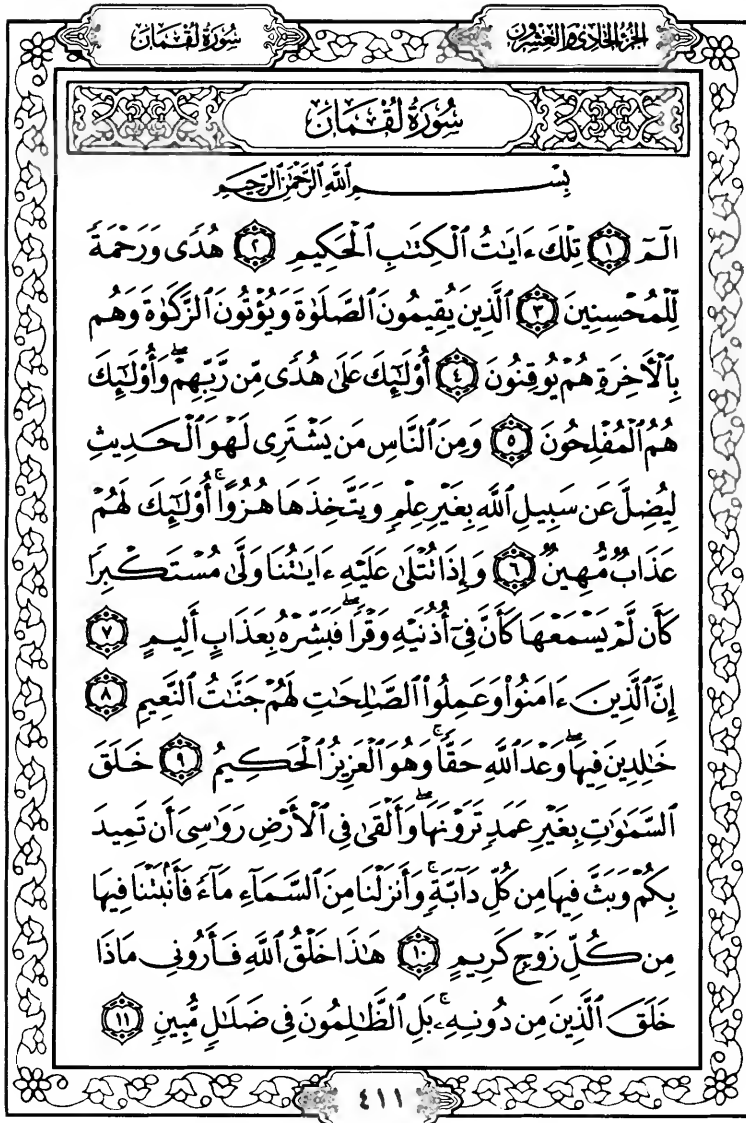 الجزء الحادي والعشرون
سُورَةُ لُقْمَان
سُورَةُ لُقْمَان
بِسْمِ ٱللَّهِ ٱلرَّحْمَٰنِ ٱلرَّحِيمِ
الٓمٓ ١ تِلْكَ ءَايَٰتُ ٱلْكِتَٰبِ ٱلْحَكِيمِ ٢ هُدًى وَرَحْمَةً
لِّلْمُحْسِنِينَ ٣ ٱلَّذِينَ يُقِيمُونَ ٱلصَّلَوٰةَ وَيُؤْتُونَ ٱلزَّكَوٰةَ وَهُم
بِٱلْأَخِرَةِ هُمْ يُوقِنُونَ ٤ أُوْلَٰٓئِكَ عَلَىٰ هُدًى مِّن رَّبِّهِمْ ۖ وَأُوْلَٰٓئِكَ
هُمُ ٱلْمُفْلِحُونَ ٥ وَمِنَ ٱلنَّاسِ مَن يَشْتَرِى لَهْوَ ٱلْحَدِيثِ
لِيُضِلَّ عَن سَبِيلِ ٱللَّهِ بِغَيْرِ عِلْمٍ وَيَتَّخِذَهَا هُزُوًا ۚ أُوْلَٰٓئِكَ لَهُمْ
عَذَابٌ مُّهِينٌ ٦ وَإِذَا تُتْلَىٰ عَلَيْهِ ءَايَٰتُنَا وَلَّىٰ مُسْتَكْبِرًا
كَأَن لَّمْ يَسْمَعْهَا كَأَنَّ فِىٓ أُذُنَيْهِ وَقْرًا ۖ فَبَشِّرْهُ بِعَذَابٍ أَلِيمٍ ٧
إِنَّ ٱلَّذِينَ ءَامَنُوا۟ وَعَمِلُوا۟ ٱلصَّٰلِحَٰتِ لَهُمْ جَنَّٰتُ ٱلنَّعِيمِ ٨
خَٰلِدِينَ فِيهَا ۖ وَعْدَ ٱللَّهِ حَقًّا ۚ وَهُوَ ٱلْعَزِيزُ ٱلْحَكِيمُ ٩ خَلَقَ
ٱلسَّمَٰوَٰتِ بِغَيْرِ عَمَدٍ تَرَوْنَهَا ۖ وَأَلْقَىٰ فِى ٱلْأَرْضِ رَوَٰسِىَ أَن تَمِيدَ
بِكُمْ وَبَثَّ فِيهَا مِن كُلِّ دَآبَّةٍ ۚ وَأَنزَلْنَا مِنَ ٱلسَّمَآءِ مَآءً فَأَنۢبَتْنَا فِيهَا
مِن كُلِّ زَوْجٍ كَرِيمٍ ١٠ هَٰذَا خَلْقُ ٱللَّهِ فَأَرُونِى مَاذَا
خَلَقَ ٱلَّذِينَ مِن دُونِهِۦ ۚ بَلِ ٱلظَّٰلِمُونَ فِى ضَلَٰلٍ مُّبِينٍ ١١
٤١١